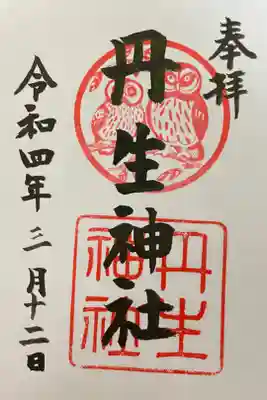 奉拝
丹生神社
丹生
神社
令和四年三月十二日